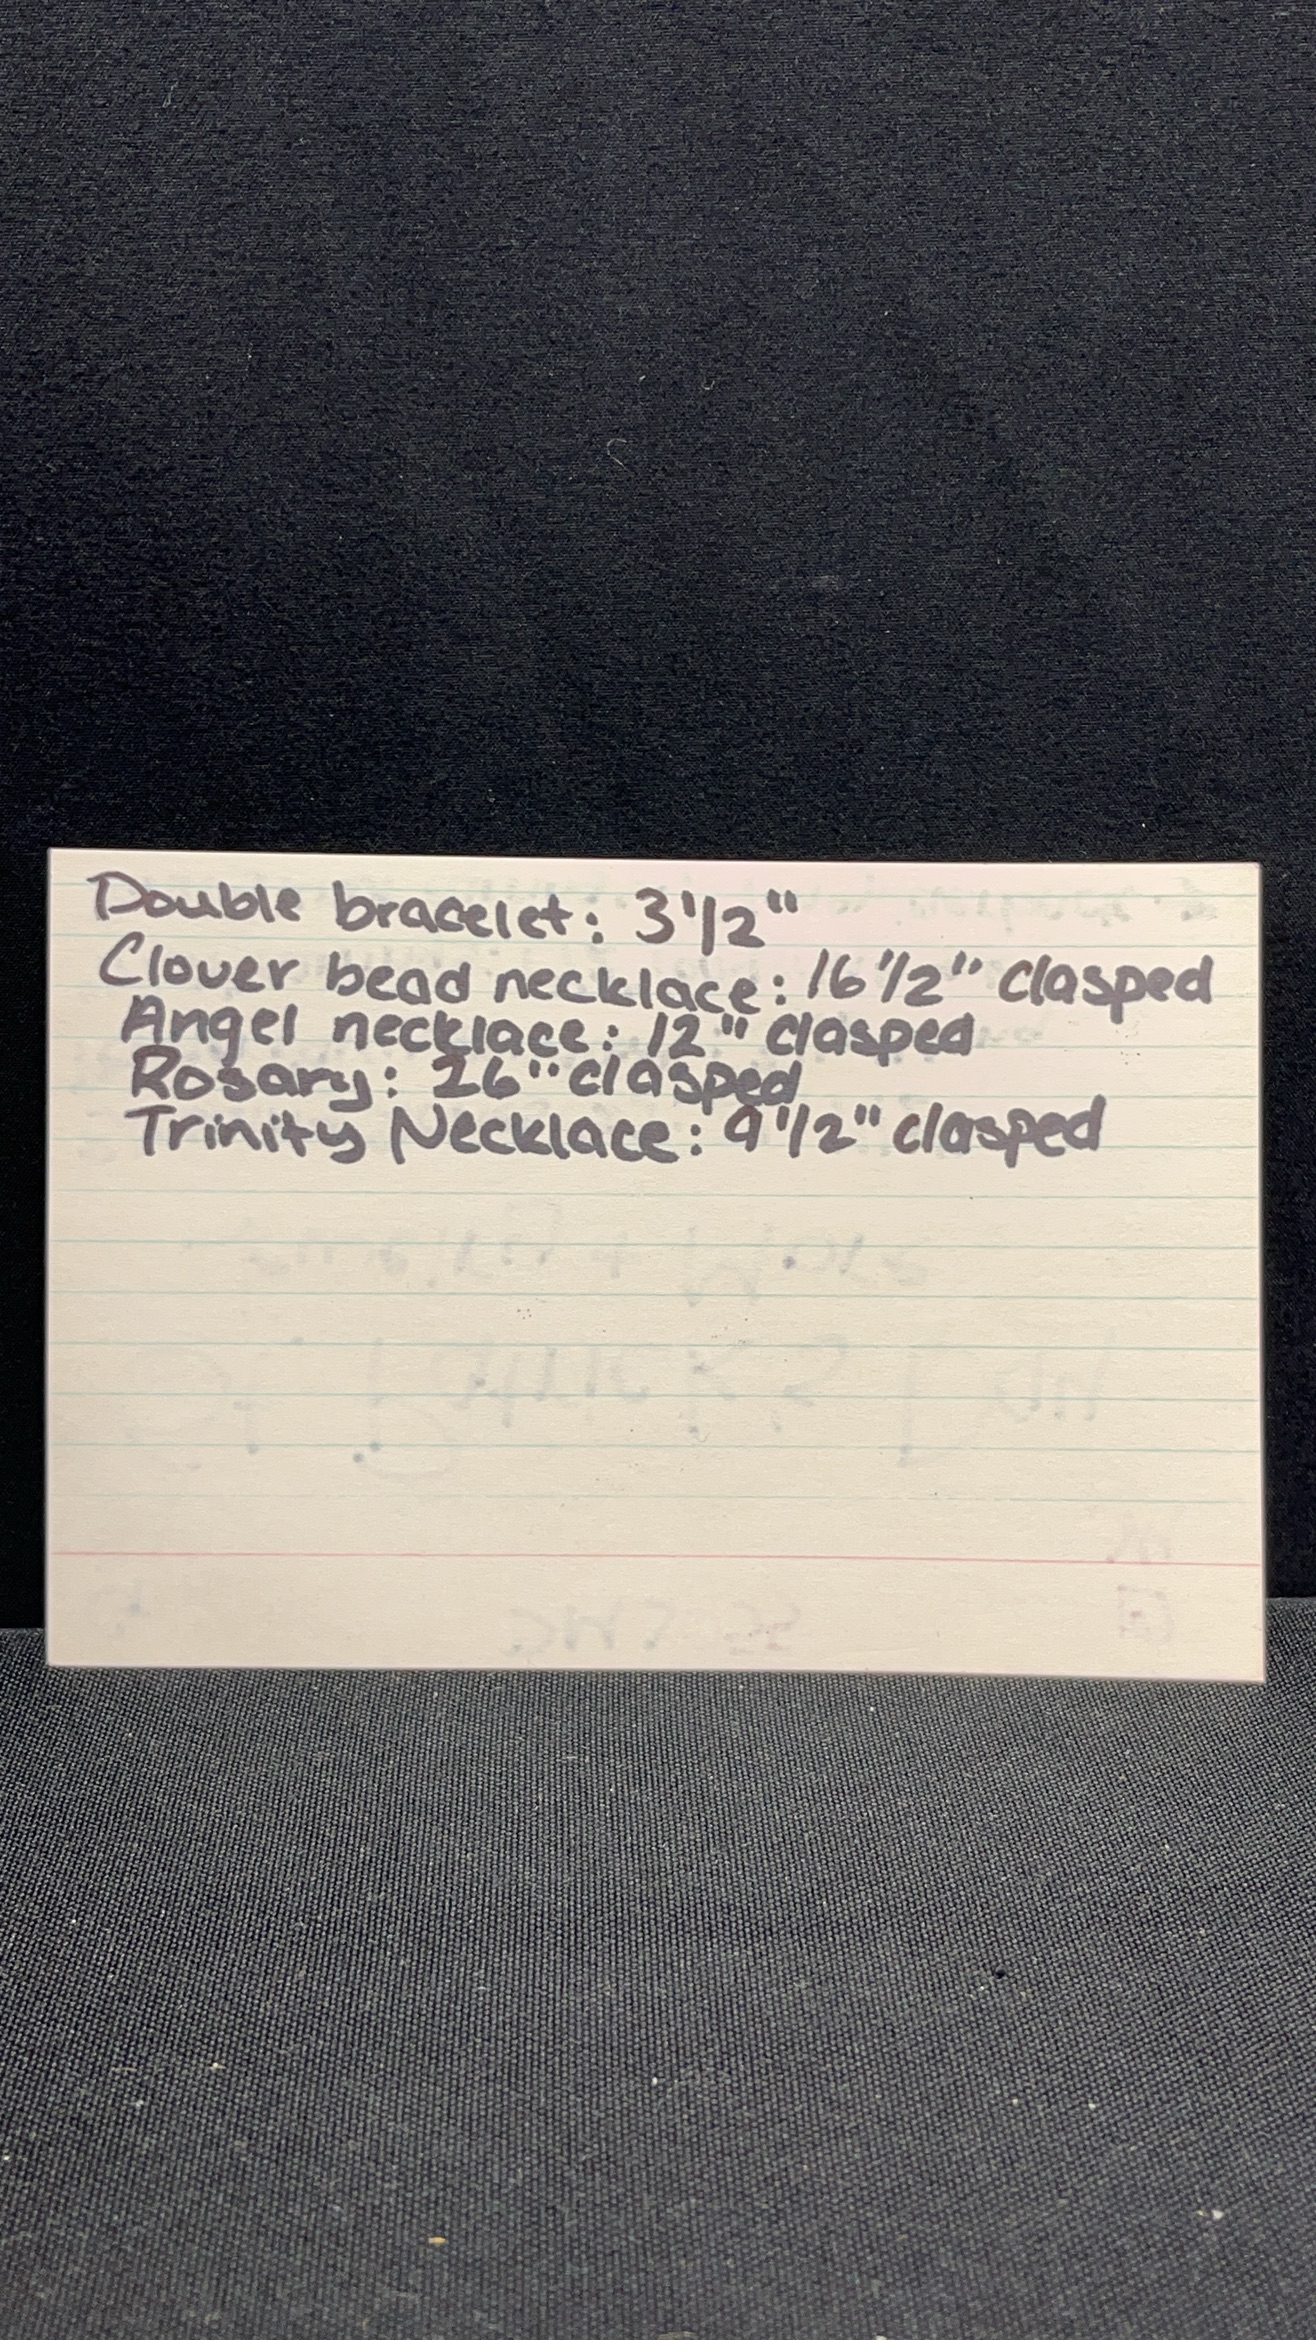 Double bracelet: 3 1/2"
Clover bead necklace: 16 1/2" clasped
Angel necklace: 12" clasped
Rosary: 26" clasped
Trinity Necklace: 9 1/2" clasped